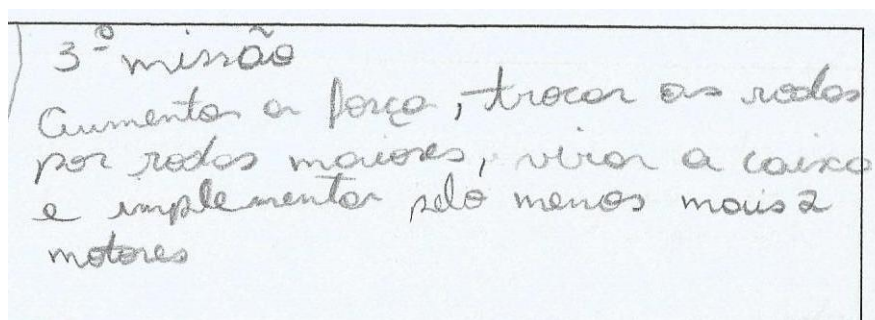 3º missão
Aumentar a força, trocar as rodas
por rodas maiores, virar a caixa
e implementar pelo menos mais 2
motores